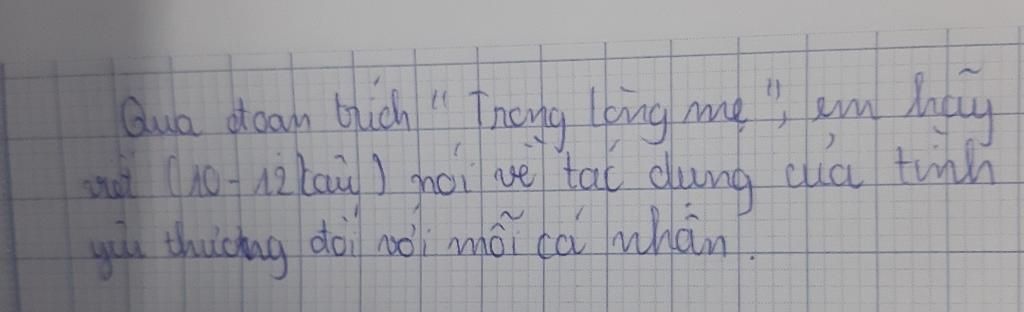 Qua đoạn trích "Trong lòng mẹ", em hãy
viết (10-12 câu) nói về tác dụng của tình
yêu thương đối với mỗi cá nhân.